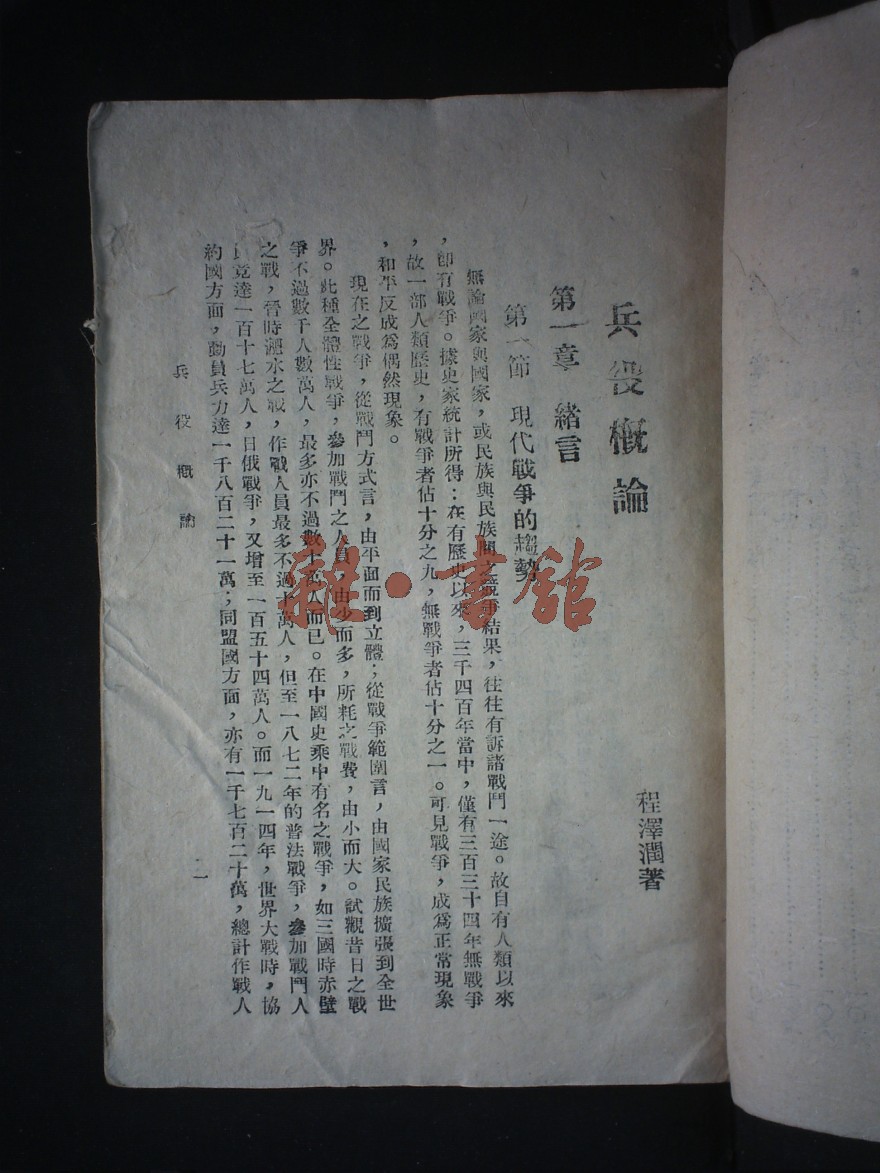 兵役概論
程澤潤著
第一章 緒言
第一節 現代戰爭的趨勢
無論國家與國家，或民族與民族間之競爭結果，往往有訴諸戰鬥一途。故自有人類以來
，卽有戰爭。據史家統計所得：在有歷史以來，三千四百年當中，僅有三百三十四年無戰爭
，故一部人類歷史，有戰爭者佔十分之九，無戰爭者佔十分之一。可見戰爭，成爲正常現象
，和平反成爲偶然現象。
現在之戰爭，從戰鬥方式言，由平面而到立體；從戰爭範圍言，由國家民族擴張到全世
界。此種全體性戰爭，參加戰鬥之人員，由少而多，所耗之戰費，由小而大。試觀昔日之戰
爭不過數千人數萬人，最多亦不過數十萬人而已。在中國史乘中有名之戰爭，如三國時赤壁
之戰，晉時淝水之戰，作戰人員最多不過十萬人，但至一八七二年的普法戰爭，參加戰鬥人
竟達一百十七萬人，日俄戰爭，又增至一百五十四萬人。而一九一四年，世界大戰時，協
約國方面，動員兵力達一千八百二十一萬；同盟國方面，亦有一千七百二十萬，總計作戰人
兵役概論
雜·書館